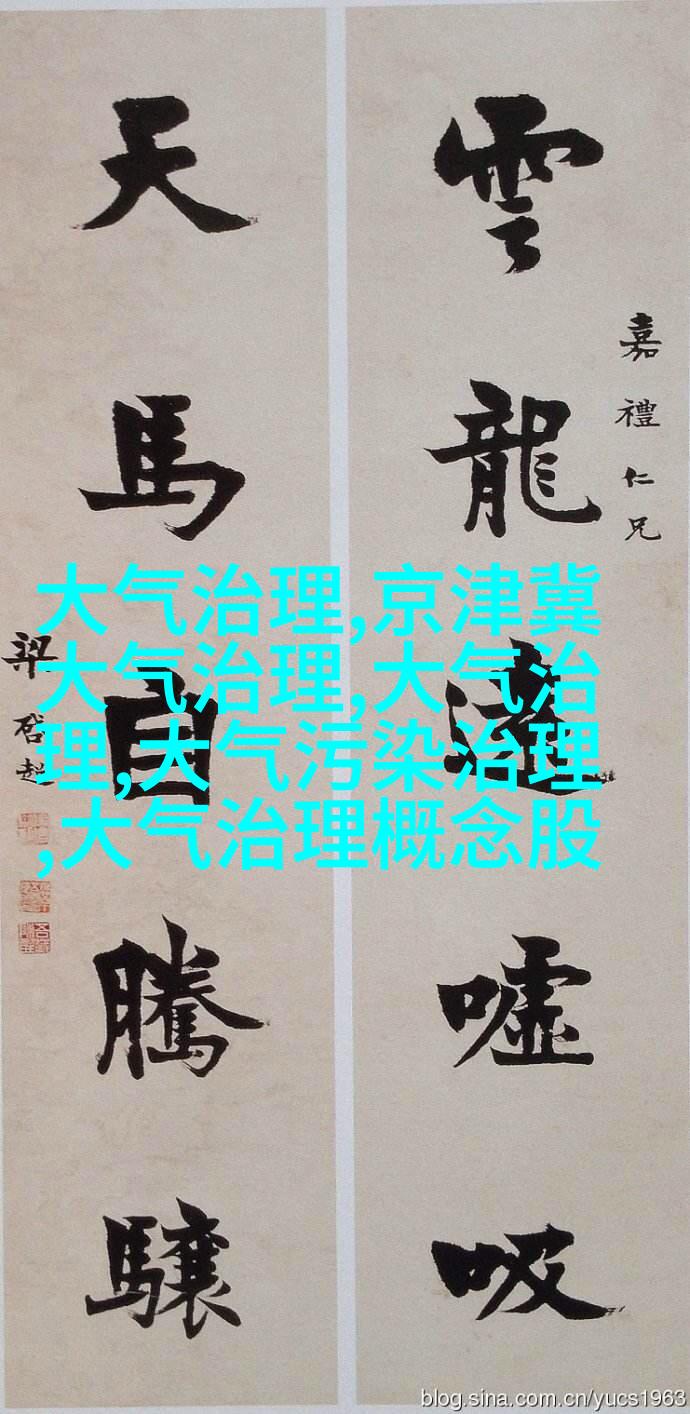 雲龍遠噓吸
嘉禮仁兄
天馬自騰驤
梁啓超
大气治理,京津冀
大气治理,大气治
理,大气污染治理
,大气治理概念股
blog.sina.com.cn/yucs1963